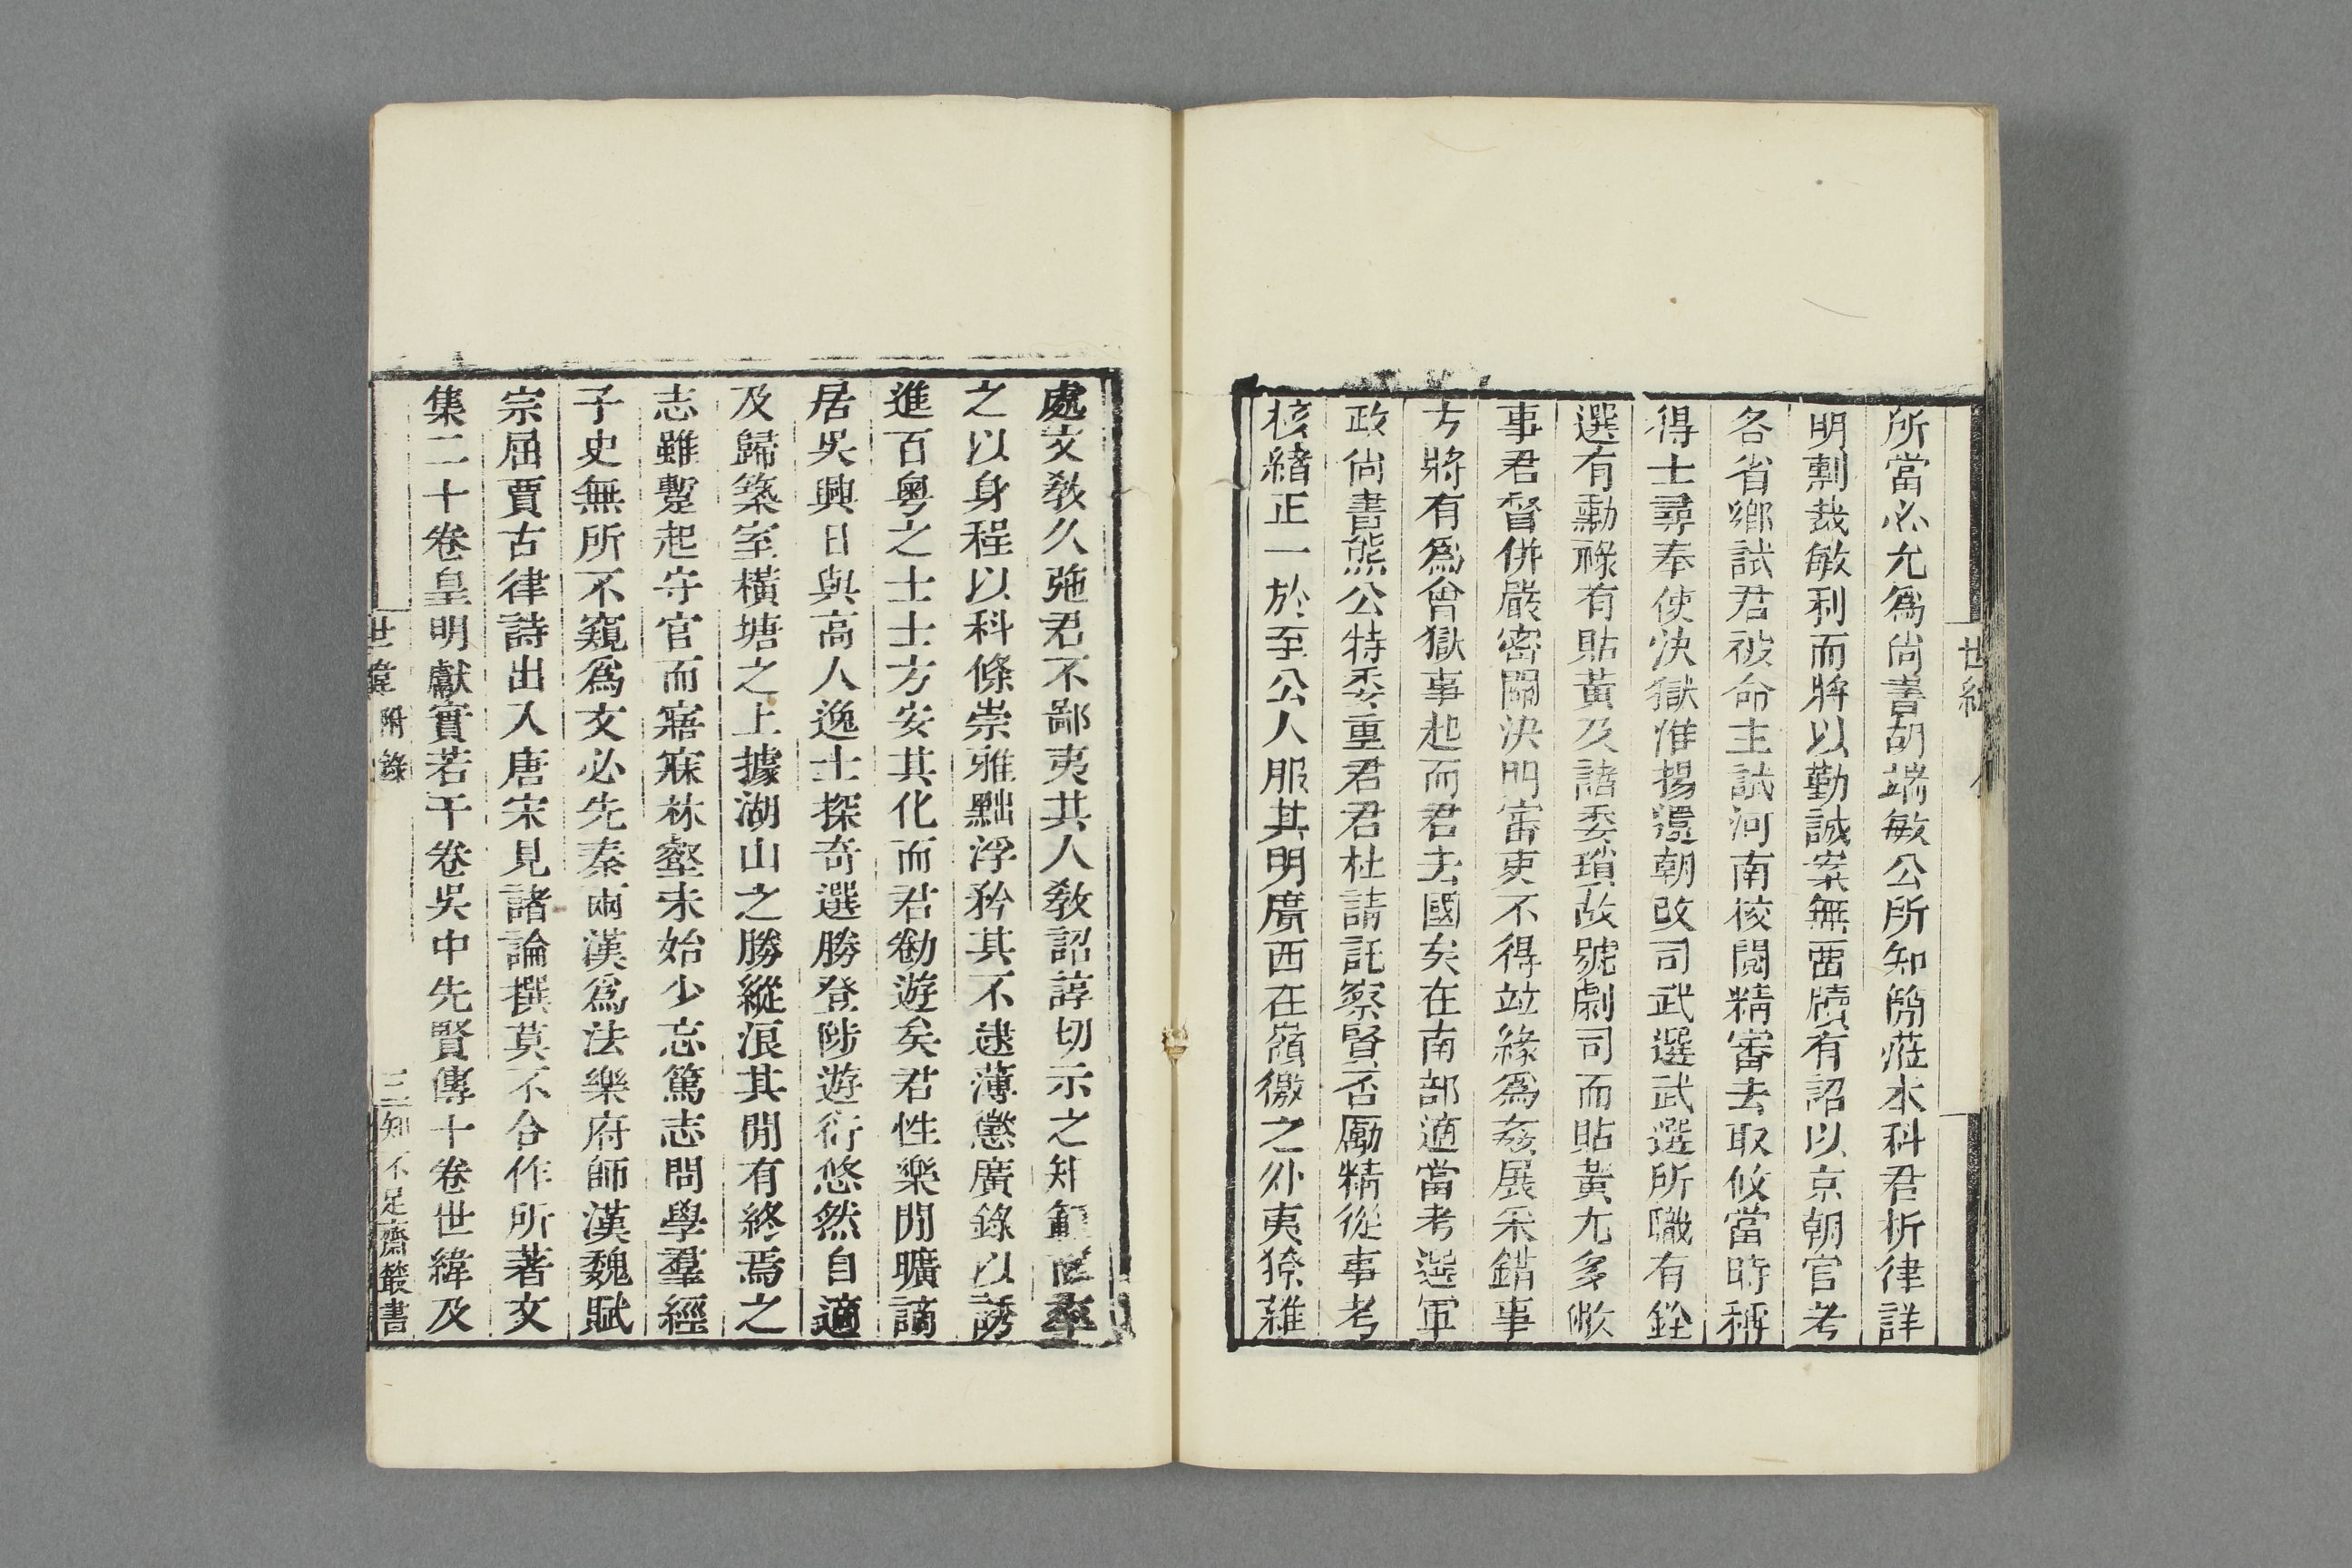 所當必允爲尚書胡端敏公所知簡蒞本科君析律詳
明剸裁敏利而將以勤誠案無畱牘有詔以京朝官考
各省鄉試君被命主試河南校閱精審去取攸當時稱
得士尋奉使決獄淮揚還朝改司武選武選所職有銓
選有勳祿有貼黃及諸委瑣故號劇司而貼黃尤多敝
事君督併嚴密關決明審吏不得竝緣爲姦展采錯事
方將有爲會獄事起而君去國矣在南部適當考選軍
政尙書熊公特委重君君杜請託察賢否勵精從事考
核繒正一於至公人服其明廣西在嶺徼之外夷獠雜
處文敎久弛君不鄙夷其人敎詔諄切示之知
之以身程以科條崇雅黜浮矜其不逮薄懲廣錄以誘
進百粵之士士方安其化而君勌遊矣君性樂閒曠謫
居吳興日與高人逸士探奇選勝登陟遊衍悠然自適
及歸築室橫塘之上據湖山之勝縱浪其閒有終焉之
志雖蹔起守官而寤寐林壑未始少忘篤志問學羣經
子史無所不窺爲文必先秦兩漢爲法樂府師漢魏賦
宗屈賈古律詩出入唐宋見諸論撰莫不合作所著文
集二十卷皇明獻實若干卷吳中先賢傳十卷世緯及
世緯附錄 三 知不足齋叢書